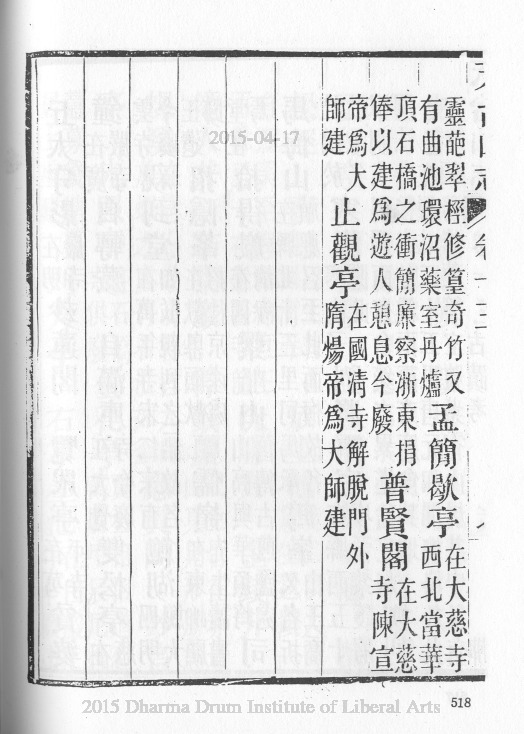 靈葩翠檉修篁奇竹又
有曲池環沼藥室丹爐
孟簡歇亭
在大慈寺
西北當華
頂石橋之衝簡廉察浙東捐
俸以建爲遊人憩息今廢
普賢閣
在大慈
寺陳宣
帝爲大
師建
止觀亭
在國清寺解脫門外
隋煬帝爲大師建
2015-04-17
518
2015 Dharma Drum Institute of Liberal Arts